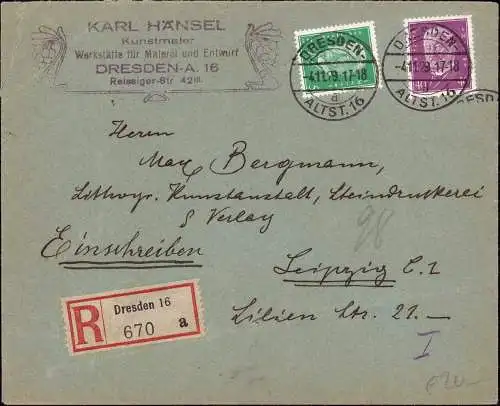 KARL HÄNSEL
Kunstmaler
Werkstätte für Malerei und Entwurf
DRESDEN-A. 16
Reissiger-Str 42III.
DRESDEN
-4.11.29.17-18
a
ALTST. 16
DRESDEN
-4.11.29.17-18
ALTST. 16
DRESD
40
Herrn
Max Bergmann,
Lithogr. Kunstanstalt, Steindruckerei
& Verlag
98
Einschreiben
Leipzig C. 1
Lilien Str. 21.—
R
Dresden 16
670 a
I